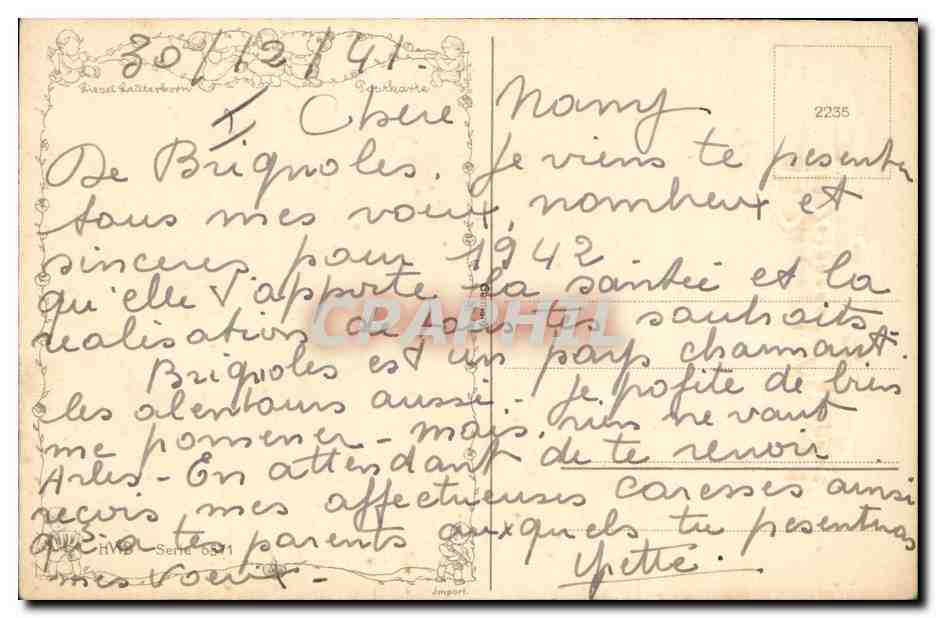 30/12/41.
Liesel Lauterborn Postkarte
2235
Chere Nany.
De Brignoles. Je viens te pesenter
tous mes voeux, nombreux et
sinceres pour 1942
qu'elle t'apporte la santée et la
realisation de tous tes souhaits.
Brignoles est un pays charmant.
les alentours aussi. Je pofite de bien
me pomener - mais, rien ne vaut
Arles - En attendant de te revoir
reçois mes affectueuses caresses ainsi
qu'a tes parents auxquels tu pesenteras
mes voeux -
Yvette.
HWB Serie
Import.
CRAPHIL